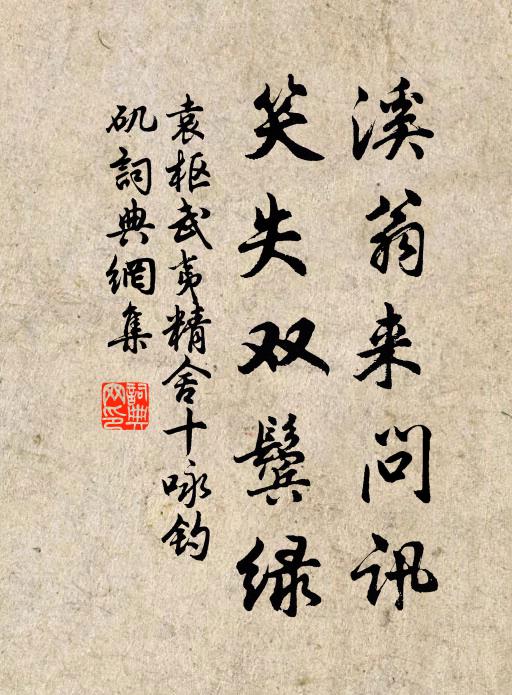 溪翁来问讯
笑失双鬓绿
袁枢武夷精舍十咏钓
矶詞典網集
詞典
网印